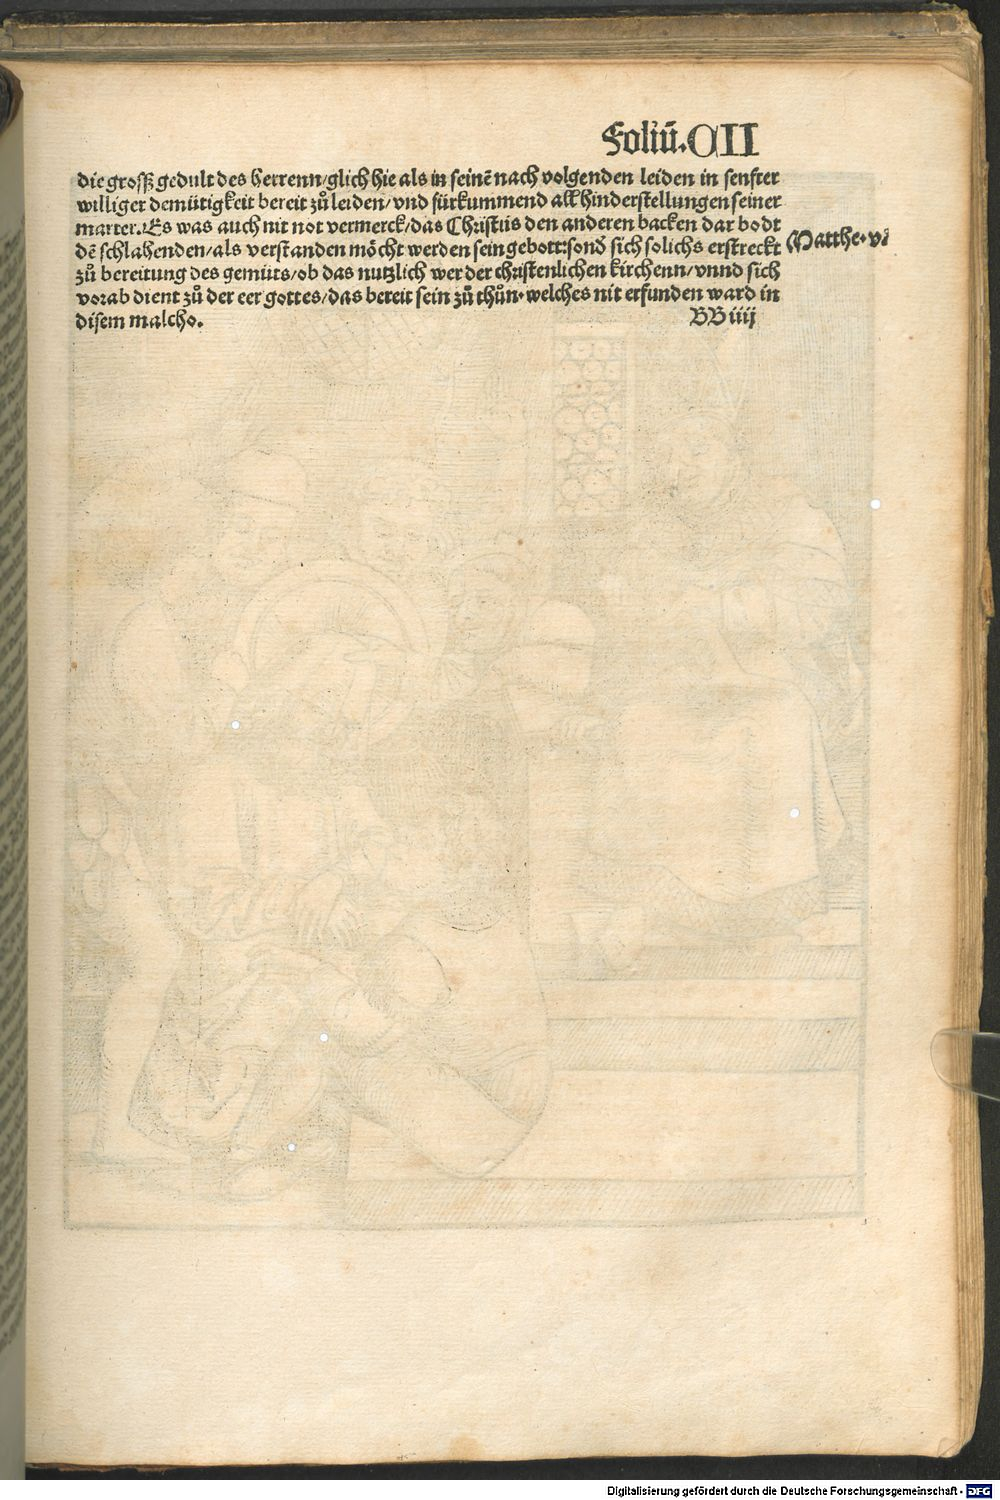 Foliū.CII
die grossz gedult des herrenn/glich hie als in seinē nach volgenden leiden in senfter
williger demütigkeit bereit zů leiden/vnd fürkummend all hinderstellungen seiner
marter. Es was auch nit not vermerck/das Christus den anderen backen dar bodt
dē schlahenden/als verstanden möcht werden sein gebott:sond̄ sich solichs erstreckt
Matthe.v.
zů bereitung des gemüts/ob das nutzlich wer der christenlichen kirchenn/vnnd sich
vorab dient zů der eer gottes/das bereit sein zů thůn.welches nit erfunden ward in
disem malcho.
BB iiij
Digitalisierung gefördert durch die Deutsche Forschungsgemeinschaft - DFG